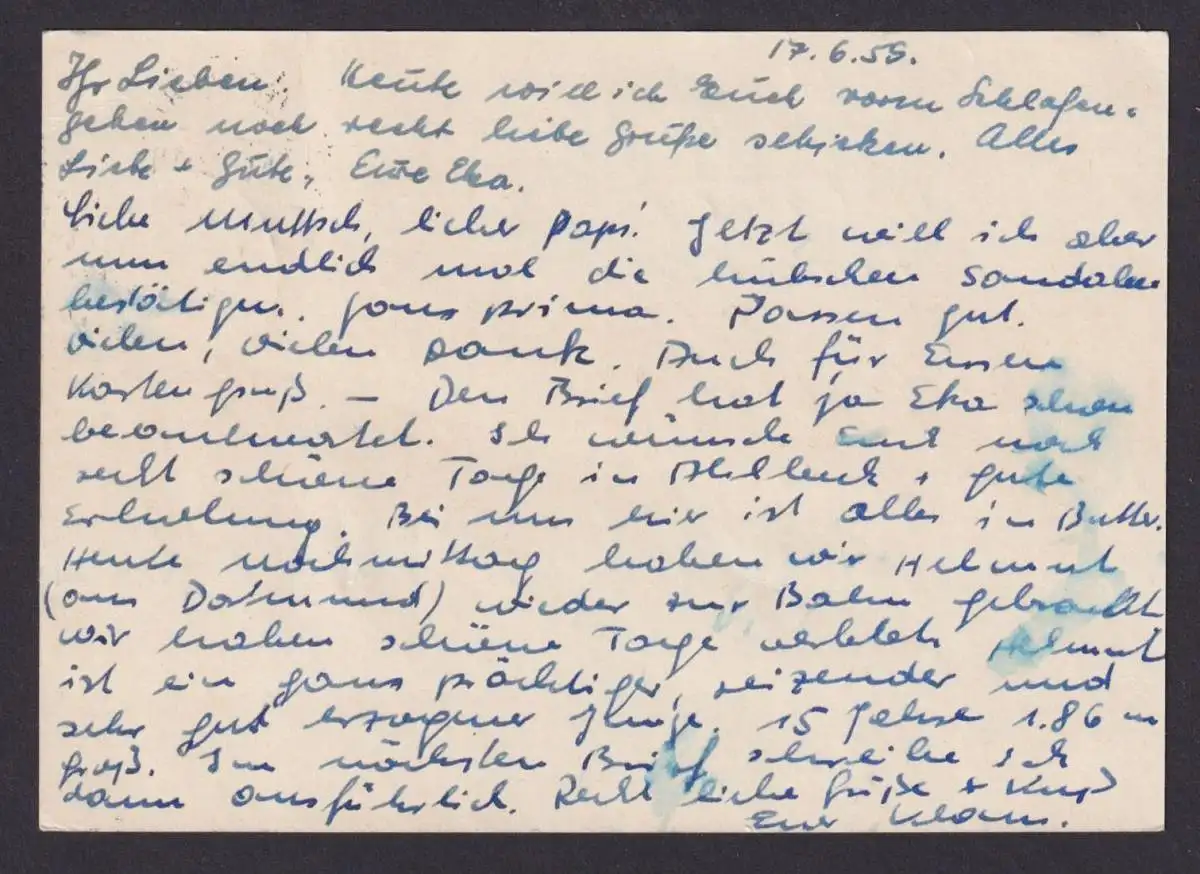 17.6.55.
Ihr Lieben. Heute will ich Euch vorm Schlafen-
gehen noch recht liebe Grüße schicken. Alles
Liebe + Gute, Eure Eka.
Liebe Muttsch, lieber Papi! Jetzt will ich aber
nun endlich mal die hübschen Sandalen
bestätigen. Ganz prima. Passen gut.
Vielen, vielen Dank. Auch für Euren
Kartengruß. – Den Brief hat ja Eka schon
beantwortet. Ich wünsche Euch noch
recht schöne Tage in Ahlbeck + gute
Erholung. Bei uns hier ist alles in Butter.
Heute nachmittag haben wir Helmut
(aus Dortmund) wieder zur Bahn gebracht
Wir haben schöne Tage verlebt. Helmut
ist ein ganz prächtiger, reizender und
sehr gut erzogner Junge. 15 Jahre 1.86 m
groß. Im nächsten Brief schreibe ich
dann ausführlich. Recht liebe Grüße + Kuß
Euer Klaus.